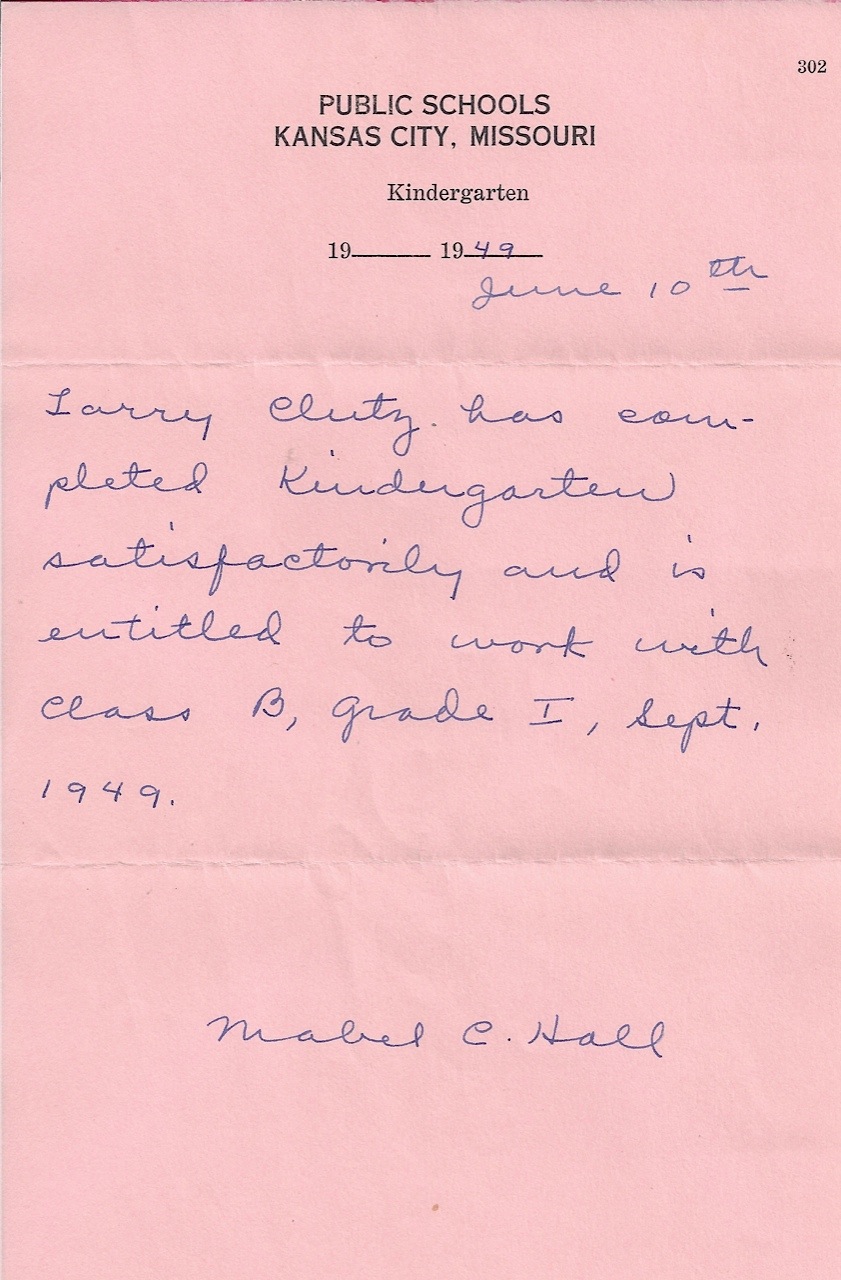 302
PUBLIC SCHOOLS
KANSAS CITY, MISSOURI
Kindergarten
19____ 1949
June 10th
Larry Clutz. has com-
pleted Kindergarten
satisfactorily and is
entitled to work with
Class B, Grade I, Sept.
1949.
Mabel C. Hall